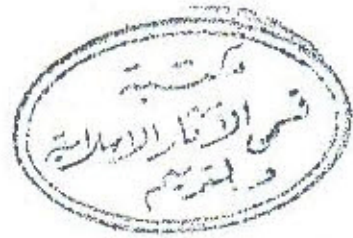 مكتبة
قسم الآثار الإسلامية
و بتريم